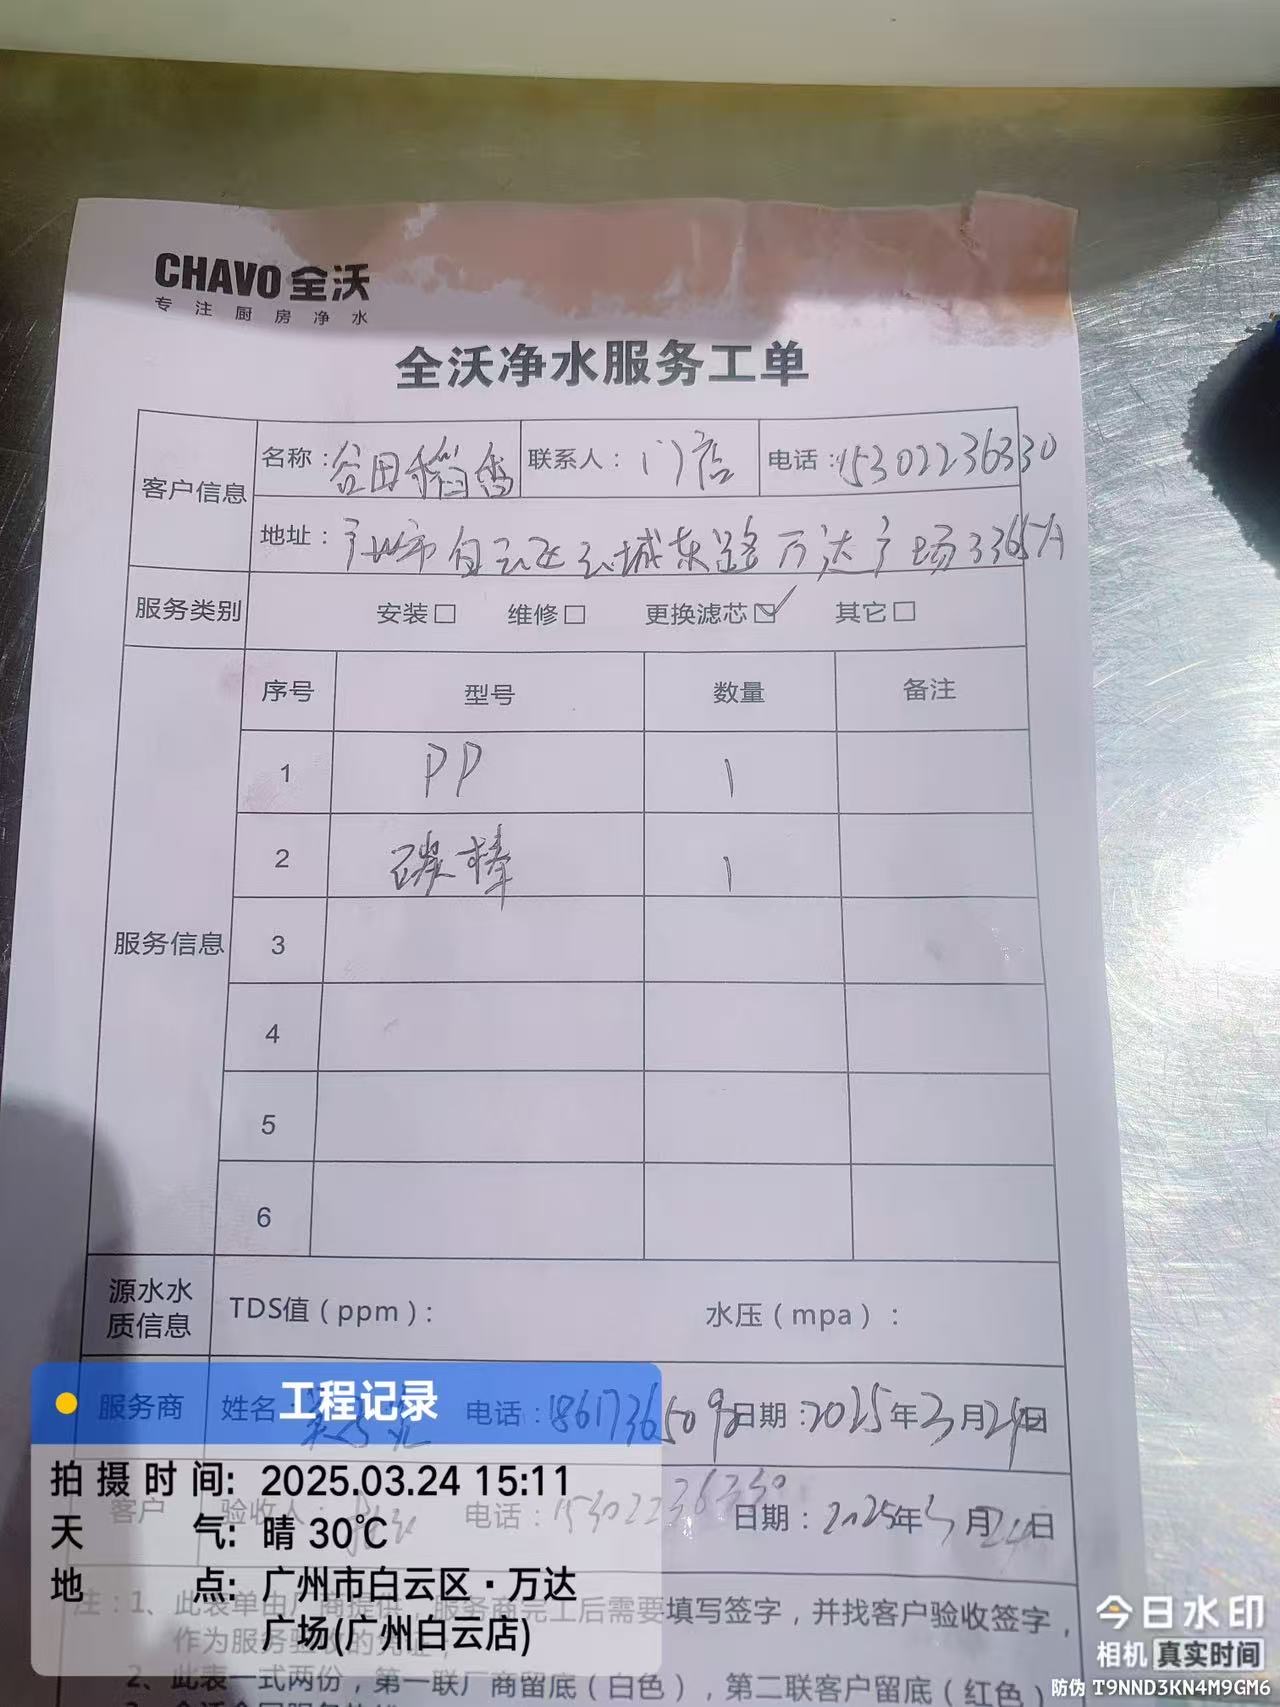 CHAVO 全沃
专注厨房净水
全沃净水服务工单
客户信息 名称：谷田稻香 联系人：门店 电话：15302236330
地址：广州市白云区云城东路万达广场3365A
服务类别 安装□ 维修□ 更换滤芯☑ 其它□
服务信息 序号 型号 数量 备注
1 PP 1
2 碳棒 1
3
4
5
6
源水水质信息 TDS值（ppm）： 水压（mpa）：
服务商 姓名： 电话：18617365098 日期：2025年3月24日
客户 验收人： 电话：15302236330 日期：2025年3月24日
注：1、此表单由厂商提供，服务商完工后需要填写签字，并找客户验收签字，
作为服务验收的凭证；
2、此表一式两份，第一联厂商留底（白色），第二联客户留底（红色）
工程记录
拍摄时间：2025.03.24 15:11
天气：晴 30℃
地点：广州市白云区·万达
广场(广州白云店)
今日水印
相机 真实时间
防伪 T9NND3KN4M9GM6